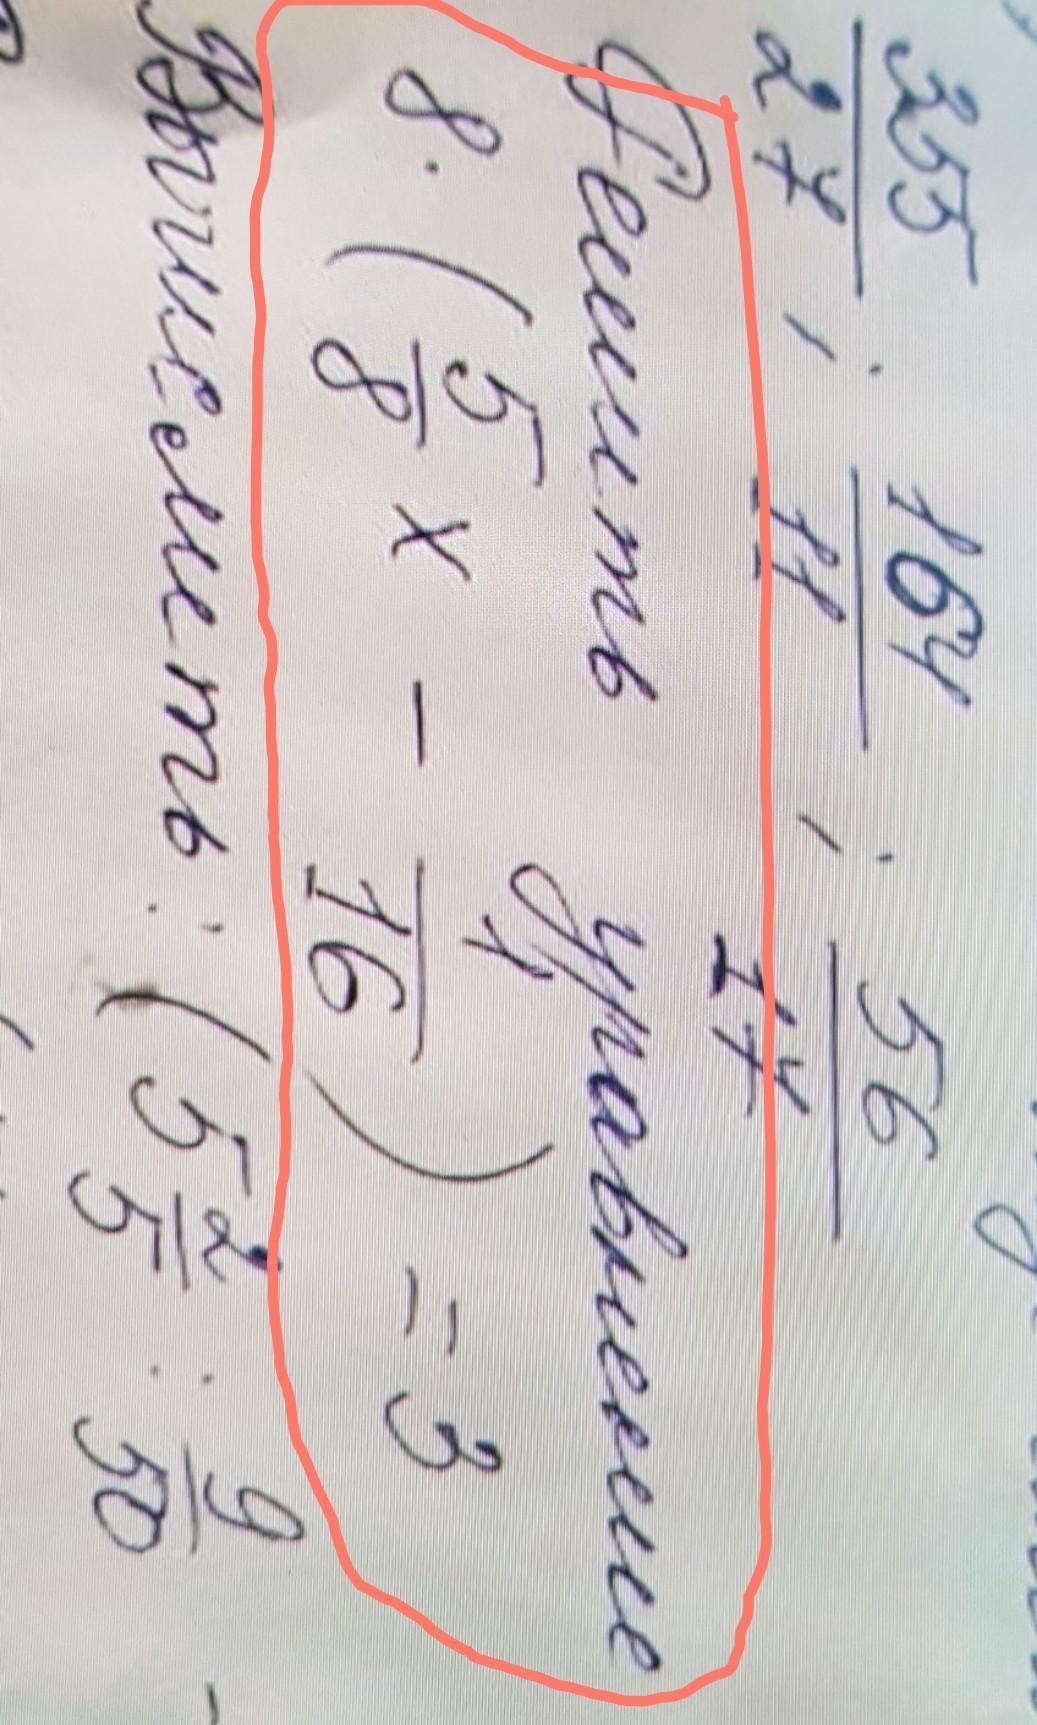 355/27 ; 164/11 ; 56/17
Решить уравнение
8 · (5/8 x - 1/16) = 3
Вычислить: (5 2/5 : 9/50 -